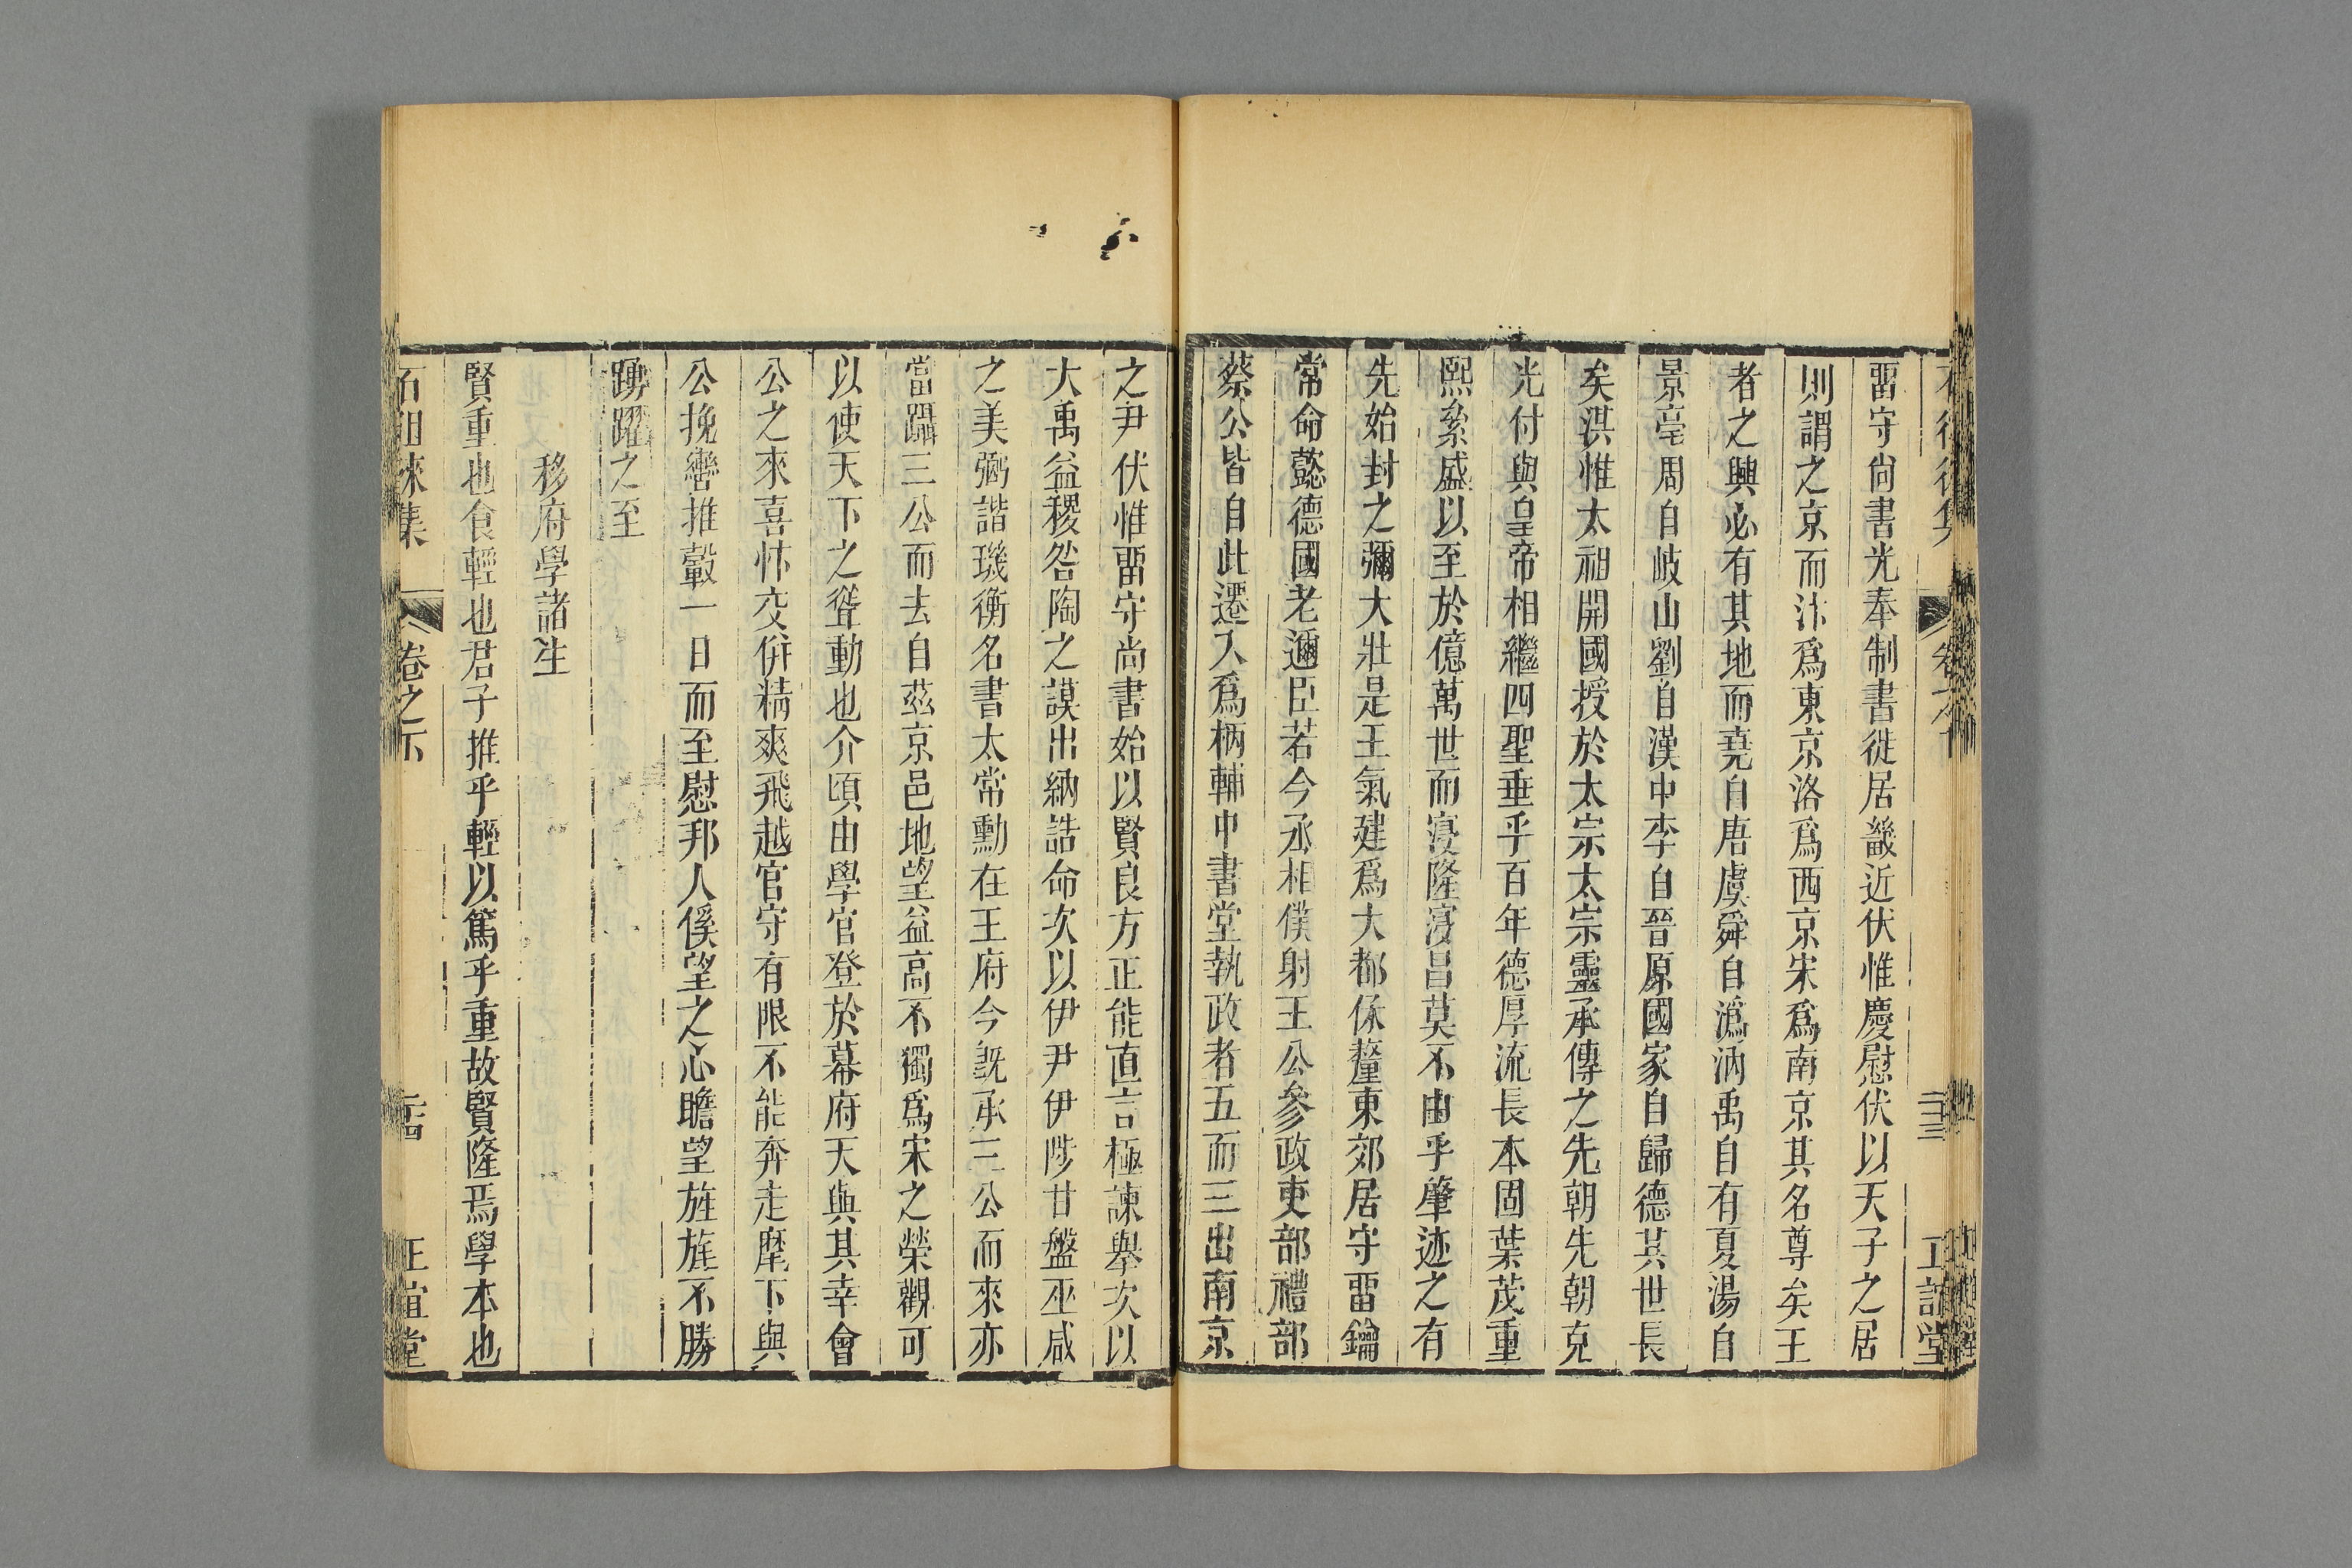 畱守尚書光奉制書徙居畿近伏惟慶慰伏以天子之居
則謂之京而汴爲東京洛爲西京宋爲南京其名尊矣王
者之興必有其地而堯自唐虞舜自溈汭禹自有夏湯自
景亳周自岐山劉自漢中李自晉原國家自歸德其世長
矣淇惟太祖開國授於太宗太宗靈承傳之先朝先朝克
光付與皇帝相繼四聖垂乎百年德厚流長本固葉茂重
熙絫盛以至於億萬世而寖隆寖昌莫不由乎肇迹之有
先始封之彌大壯是王氣建爲大都保釐東郊居守畱鑰
常命懿德國老邇臣若今丞相僕射王公參政吏部禮部
蔡公皆自此遷入爲柄輔中書堂執政者五而三出南京
之尹伏惟畱守尚書始以賢良方正能直言極諫舉次以
大禹益稷咎陶之謨出納誥命次以伊尹伊陟甘盤巫咸
之美弼諧璣衡名書太常勳在王府今既承三公而來亦
當躡三公而去自茲京邑地望益高不獨爲宋之榮觀可
以使天下之聳動也介頃由學官登於幕府天與其幸會
公之來喜忭交併精爽飛越官守有限不能奔走麾下與
公挽轡推轂一日而至慰邦人傒望之心瞻望旌旄不勝
踴躍之至
移府學諸生
賢重也食輕也君子推乎輕以篤乎重故賢隆焉學本也
石徂徠集 卷之下 二十四 正誼堂